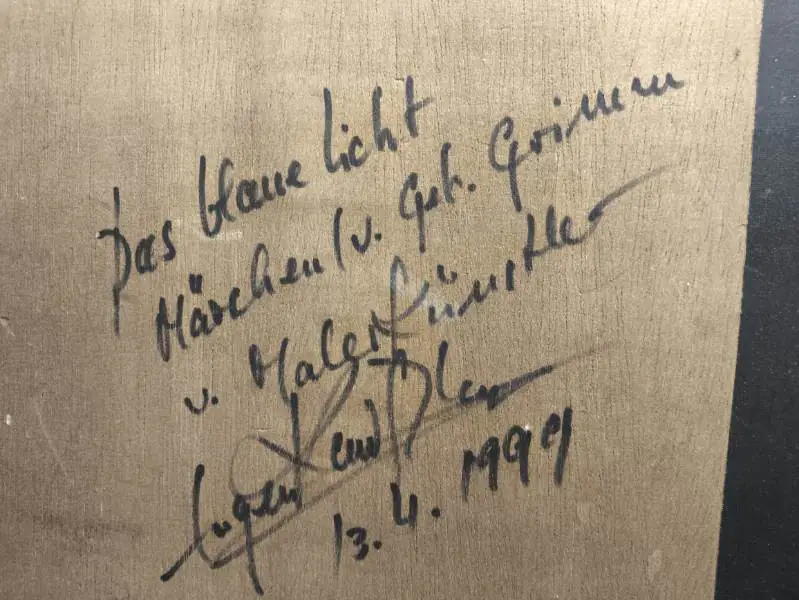 Das blaue Licht
Märchen (v. Geb. Grimm
v. Maler Künstler
Eugen
13.4.1999